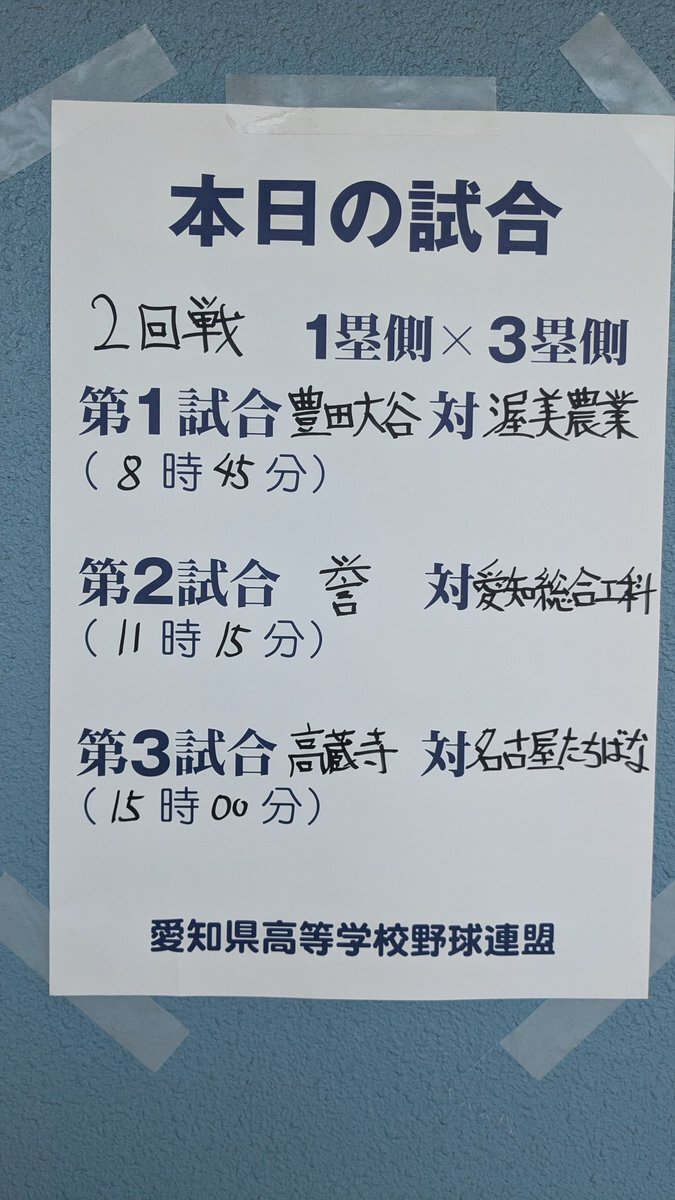 本日の試合
2回戦 1塁側×3塁側
第1試合 豊田大谷 対 渥美農業
(8時45分)
第2試合 誉 対 愛知総合工科
(11時15分)
第3試合 高蔵寺 対 名古屋たちばな
(15時00分)
愛知県高等学校野球連盟